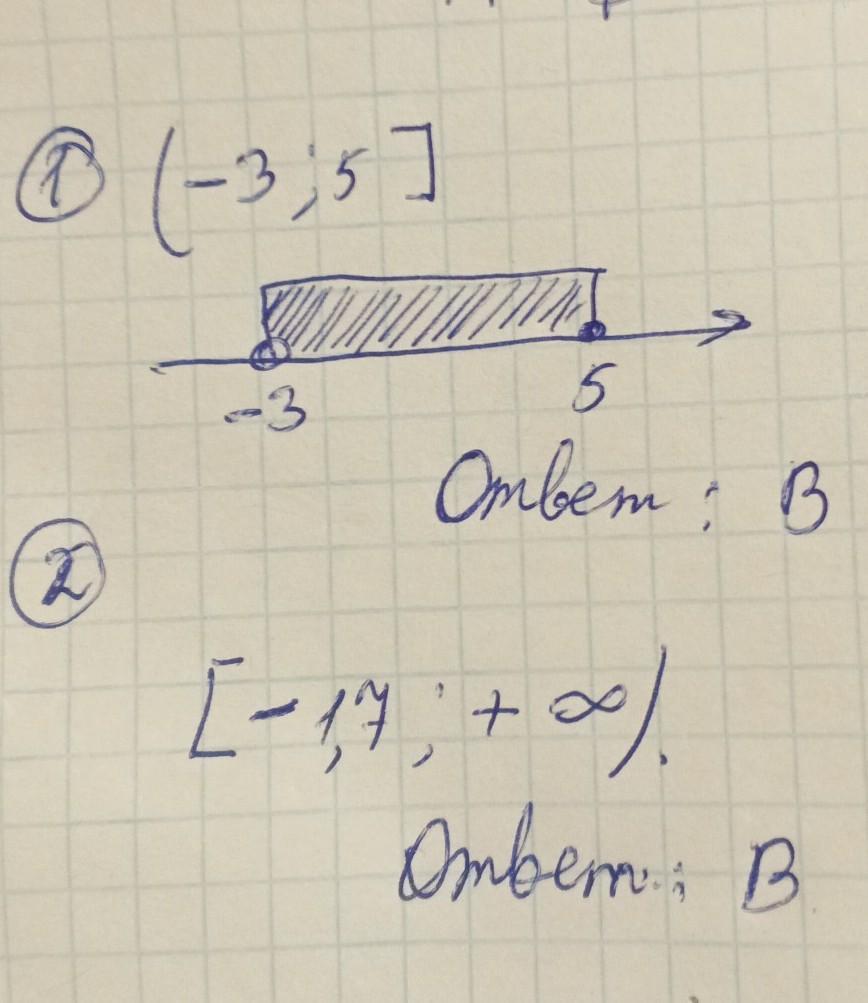 ① (-3; 5]
-3 5
Ответ: В
②
[-1,7; + ∞).
Ответ: В